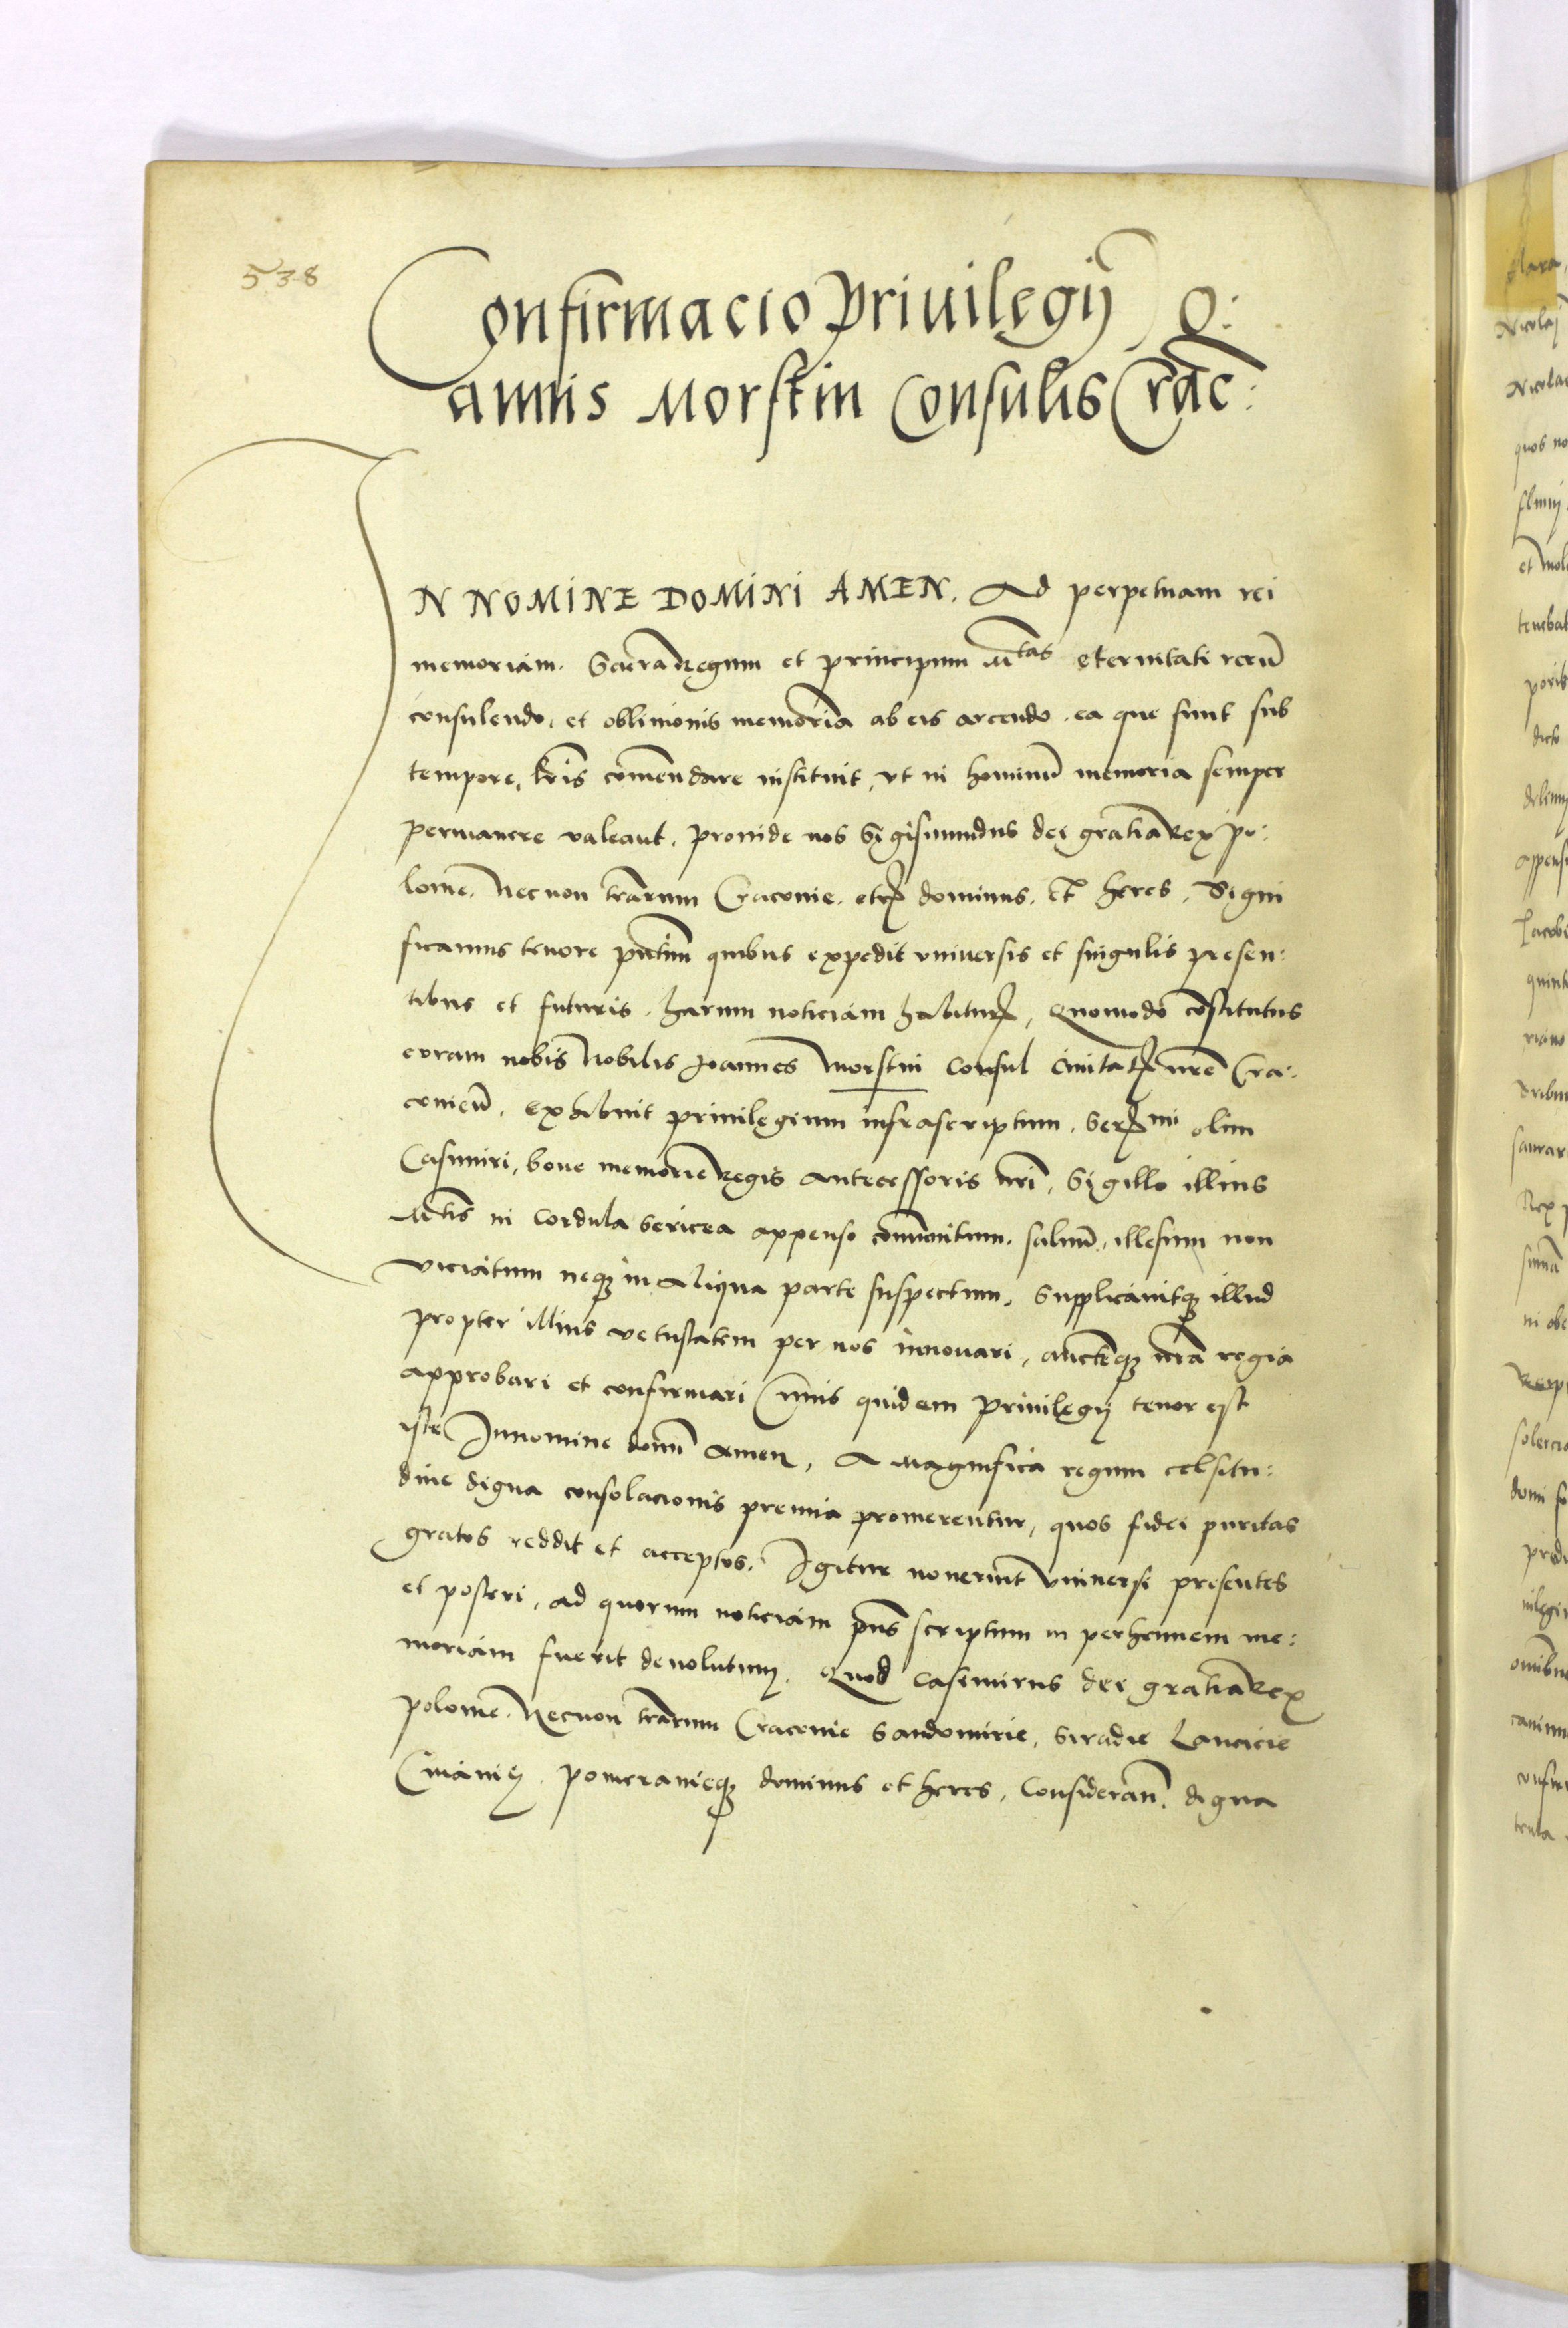 538
Confirmacio Privilegij Jo:
annis Morstin Consulis Crac:
IN NOMINE DOMINI AMEN. Ad perpetuam rei
memoriam. Sacra Regum et principum Mtas eternitati rerū
consulendo, et oblivionis memoria ab eis arcendo. ea que sunt sub
tempore, lr̄is com̄endare instituit, vt in hominū memoria semper
permanere valeant. proinde nos Sigismundus dei gratia Rex po:
lonie. Necnon trārum Cracovie. etc̄ dominus. et heres. Signi
ficamus tenore pn̄tium quibus expedit vniversis et singulis presen:
tibus et futuris. harum noticiam habituris, Quomodo cōstitutus
coram nobis Nobilis Joannes Morstin Consul Civitatis nrē Cra:
covien̄. exhibuit privilegium infrascriptum. Sermi olim
Casimiri, bone memorie Regis antecessoris nrī, Sigillo illius
Mtis in cordula sericea appenso com̄unitum. salvū, illesum non
viciatum neqȝ in aliqua parte suspectum. Supplicavitqȝ illud
propter illius vetustatem per nos innovari, auctēqȝ nrā regia
approbari et confirmari Cuius quidem privilegij tenor est
iste In nomine domī amen, A magnifica regum celsitu:
dine digna consolacionis premia promerentur, quos fidei puritas
gratos reddit et acceptos. Igitur noverint vniversi presentes
et posteri, ad quorum noticiam pn̄s scriptum in perhennem me:
moriam fuerit devolutum. Quod Casimirus dei gratia Rex
polonie. Necnon trārum Cracovie Sandomirie, Siradie Lancicie
Cuiavie, pomeranieqȝ dominus et heres, Consideran̄. digna